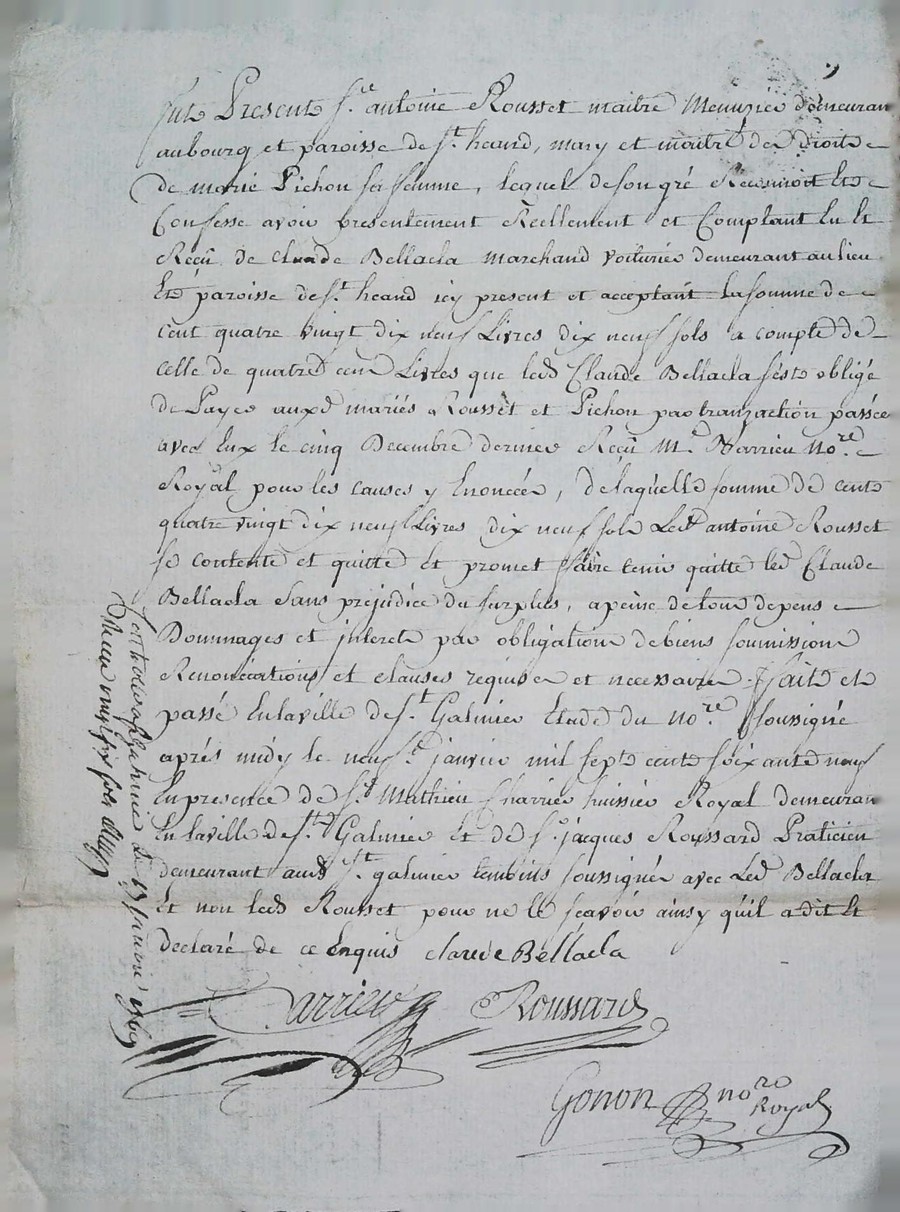 fut Present Sr. antoine Rousset maitre Menuzier demeuran
aubourg et paroisse de St. heand, mary et maitre des droits
de marie Pichon sa femme, lequel de son gré Reconnoit Et
Confesse avoir presentement Reellement et Comptant Eu Et
Reçû de claude Bellacla marchand voiturier demeurant au lieu
Et paroisse de St. heand icy present et acceptant la somme de
cent quatre vingt dix neuf Livres dix neuf sols a compte de
celle de quatre cens Livres que led Claude Bellacla s'est obligé
de Payer auxd mariés Rousset et Pichon par tranzaction passée
avec Eux le cinq Decembre dernier Reçû Me. Barrieu nore.
Royal pour les causes y Enoncées, de laquelle somme de cent
quatre vingt dix neuf Livres dix neuf sols Led antoine Rousset
se contente et quitte Et promet faire tenir quitte led Claude
Bellacla sans prejudice du surplus, a peine de tous depens
Dommages et interets par obligation de biens soumissions
Renonciations et clauses requises et necessaires. fait et
passé En laville de St. Galmier Etude du nore. soussigné
aprés midy le neuf janvier mil sept cent soixante neuf
En presence de Sr. Mathieu Charrier huissier Royal demeuran
En laville de St. Galmier Et de Sr. jacques Roussard Praticien
demeurant aud St. galmier temoins soussignés avec Led Bellacla
Et non led Rousset pour ne le sçavoir ainsy qu'il a dit Et
declaré de ce Enquis claude Bellacla
Roussard
Gonon nore
Royal
janvier 1769
Reçu sols